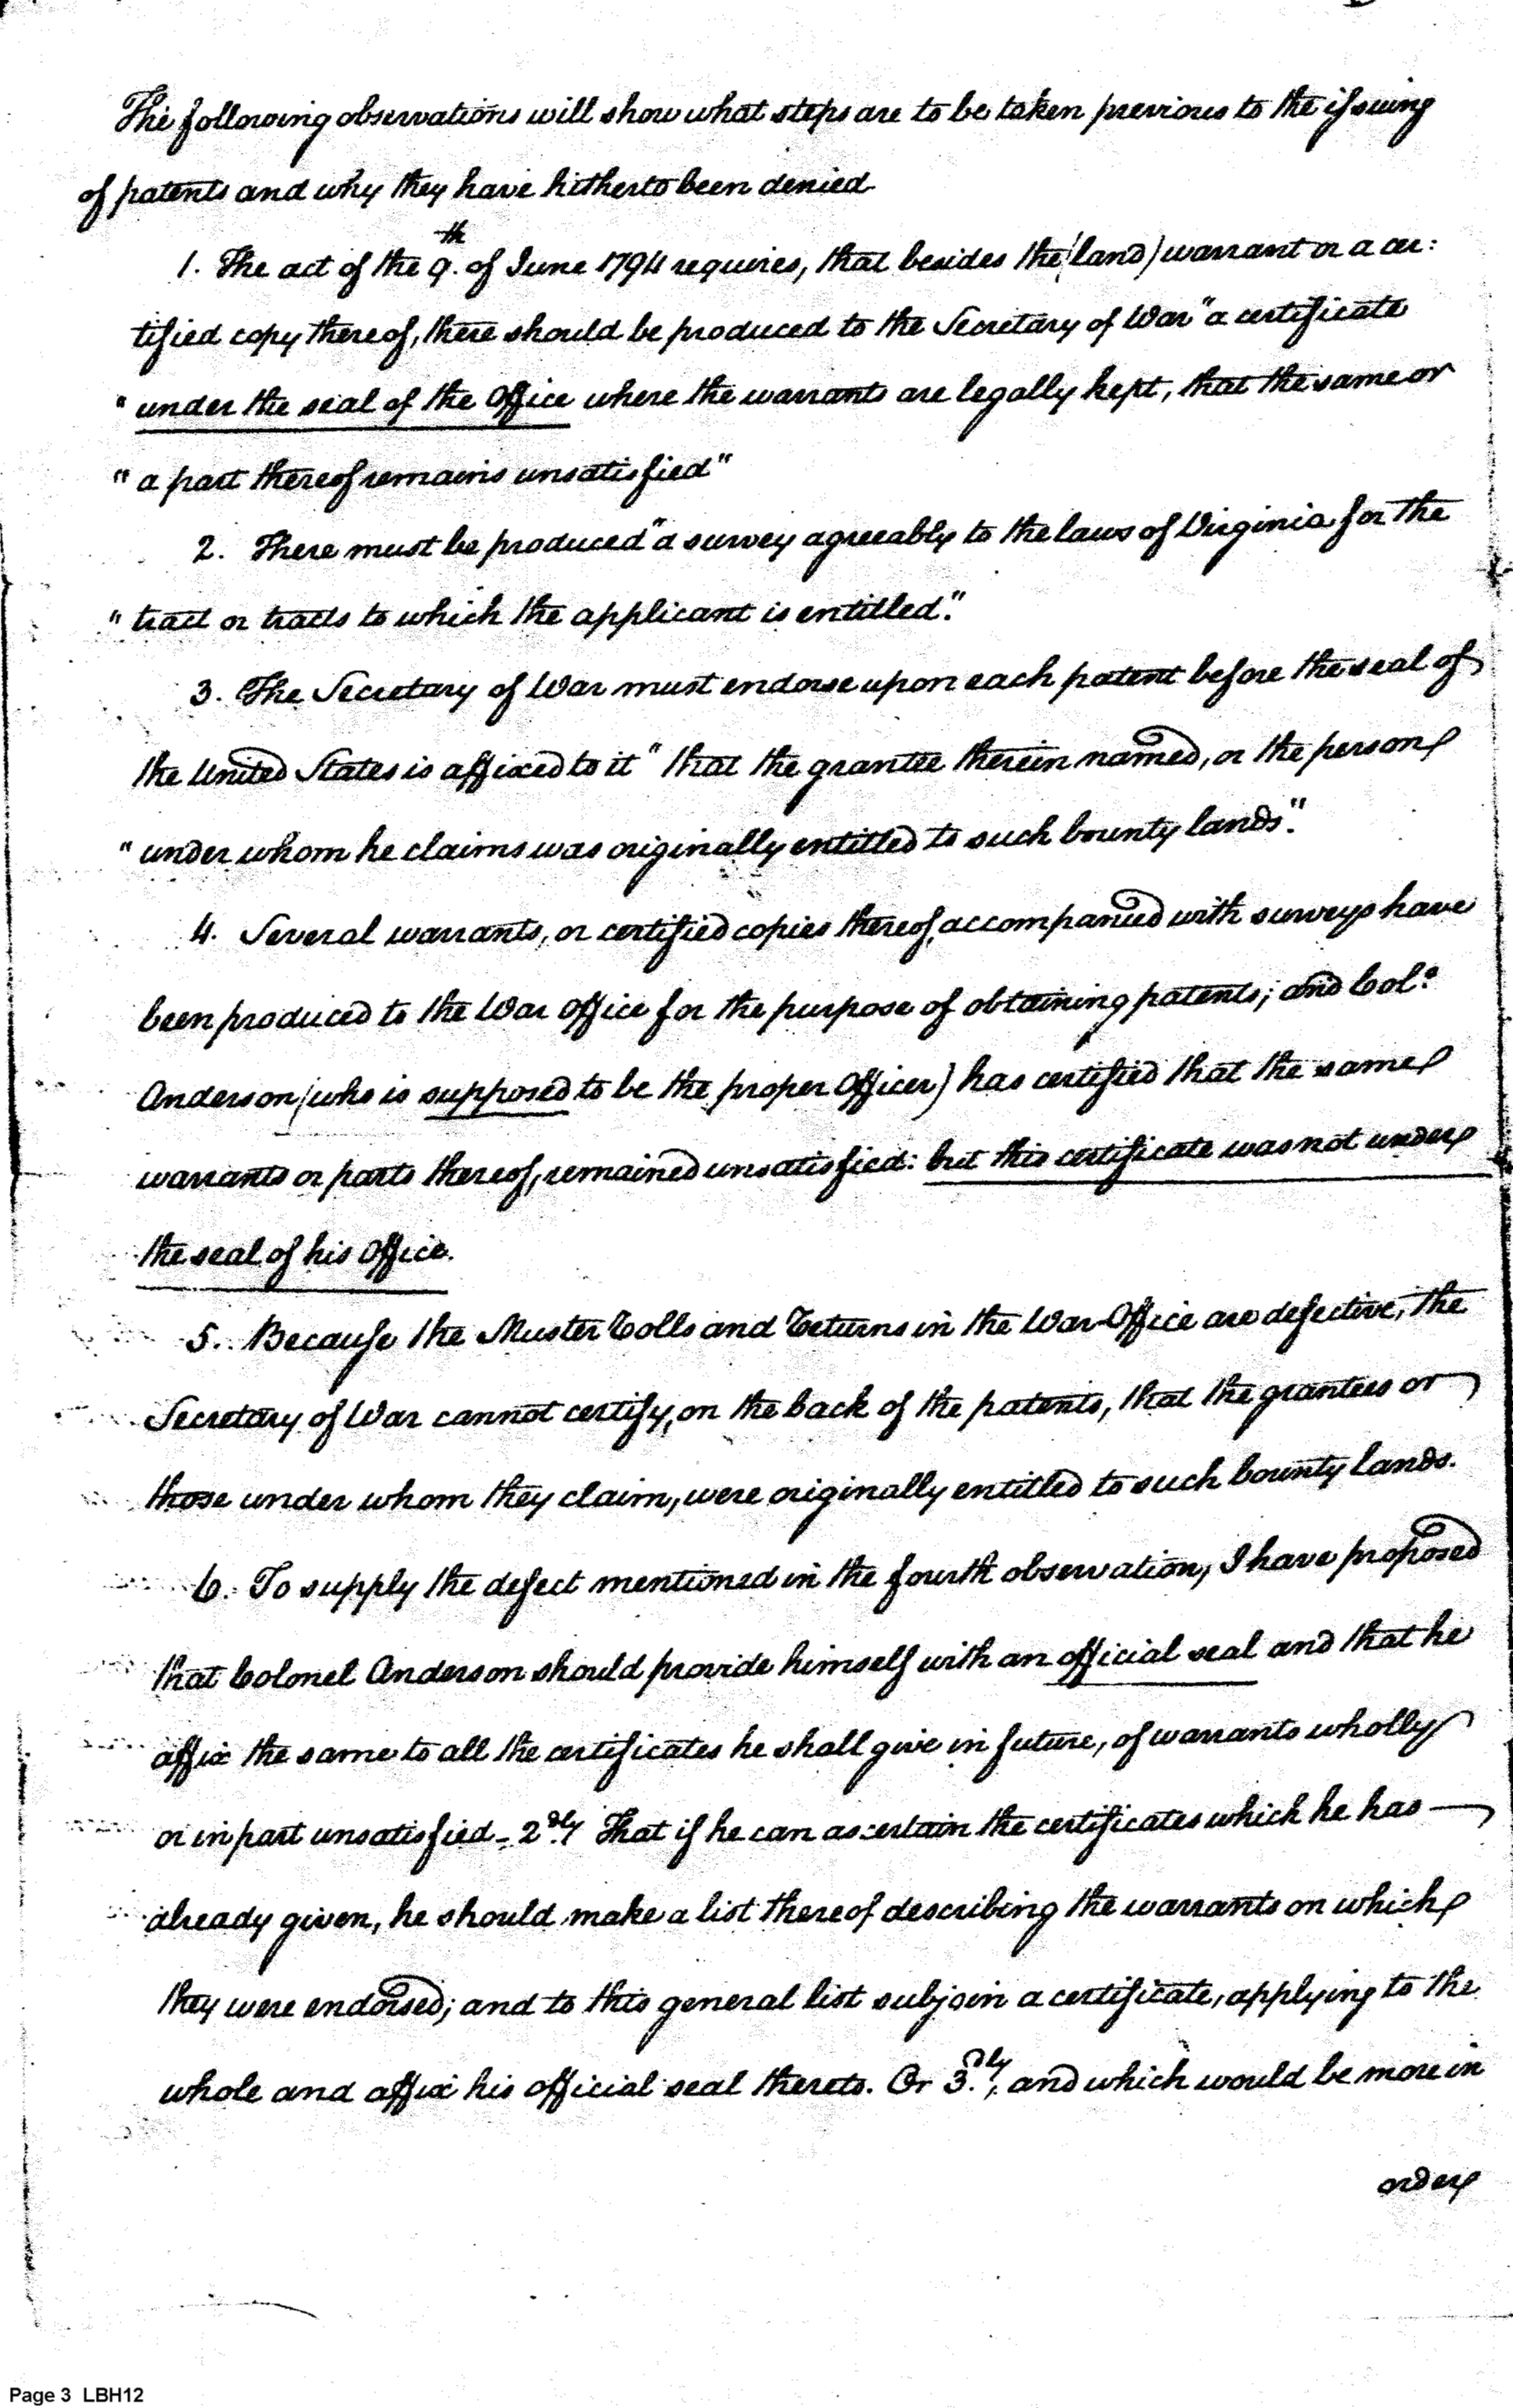 The following observations will show what steps are to be taken previous to the issuing
of patents and why they have hitherto been denied
1. The act of the 9.th of June 1794 requires, that besides the (land) warrant or a cer:
tified copy thereof, there should be produced to the Secretary of War "a certificate
" under the seal of the Office where the warrants are legally kept, that the same or
" a part thereof remains unsatisfied"
2. There must be produced "a survey agreeably to the laws of Virginia for the
" tract or tracts to which the applicant is entitled."
3. The Secretary of War must endorse upon each patent before the seal of
the United States is affixed to it " that the grantee therein named, or the person
" under whom he claims was originally entitled to such bounty lands".
4. Several warrants, or certified copies thereof, accompanied with surveys have
been produced to the War Office for the purpose of obtaining patents; and Col.o
Anderson (who is supposed to be the proper Officer) has certified that the same
warrants or parts thereof, remained unsatisfied: but this certificate was not under
the seal of his Office.
5. Because the Muster Rolls and Returns in the War-Office are defective, the
Secretary of War cannot certify, on the back of the patents, that the grantees or
those under whom they claim, were originally entitled to such bounty lands.
6. To supply the defect mentioned in the fourth observation, I have proposed
that Colonel Anderson should provide himself with an official seal and that he
affix the same to all the certificates he shall give in future, of warrants wholly
or in part unsatisfied - 2.dly That if he can ascertain the certificates which he has —
already given, he should make a list thereof describing the warrants on which
they were endorsed; and to this general list subjoin a certificate, applying to the
whole and affix his official seal thereto. Or 3.dly, and which would be more in
order
Page 3 LBH12